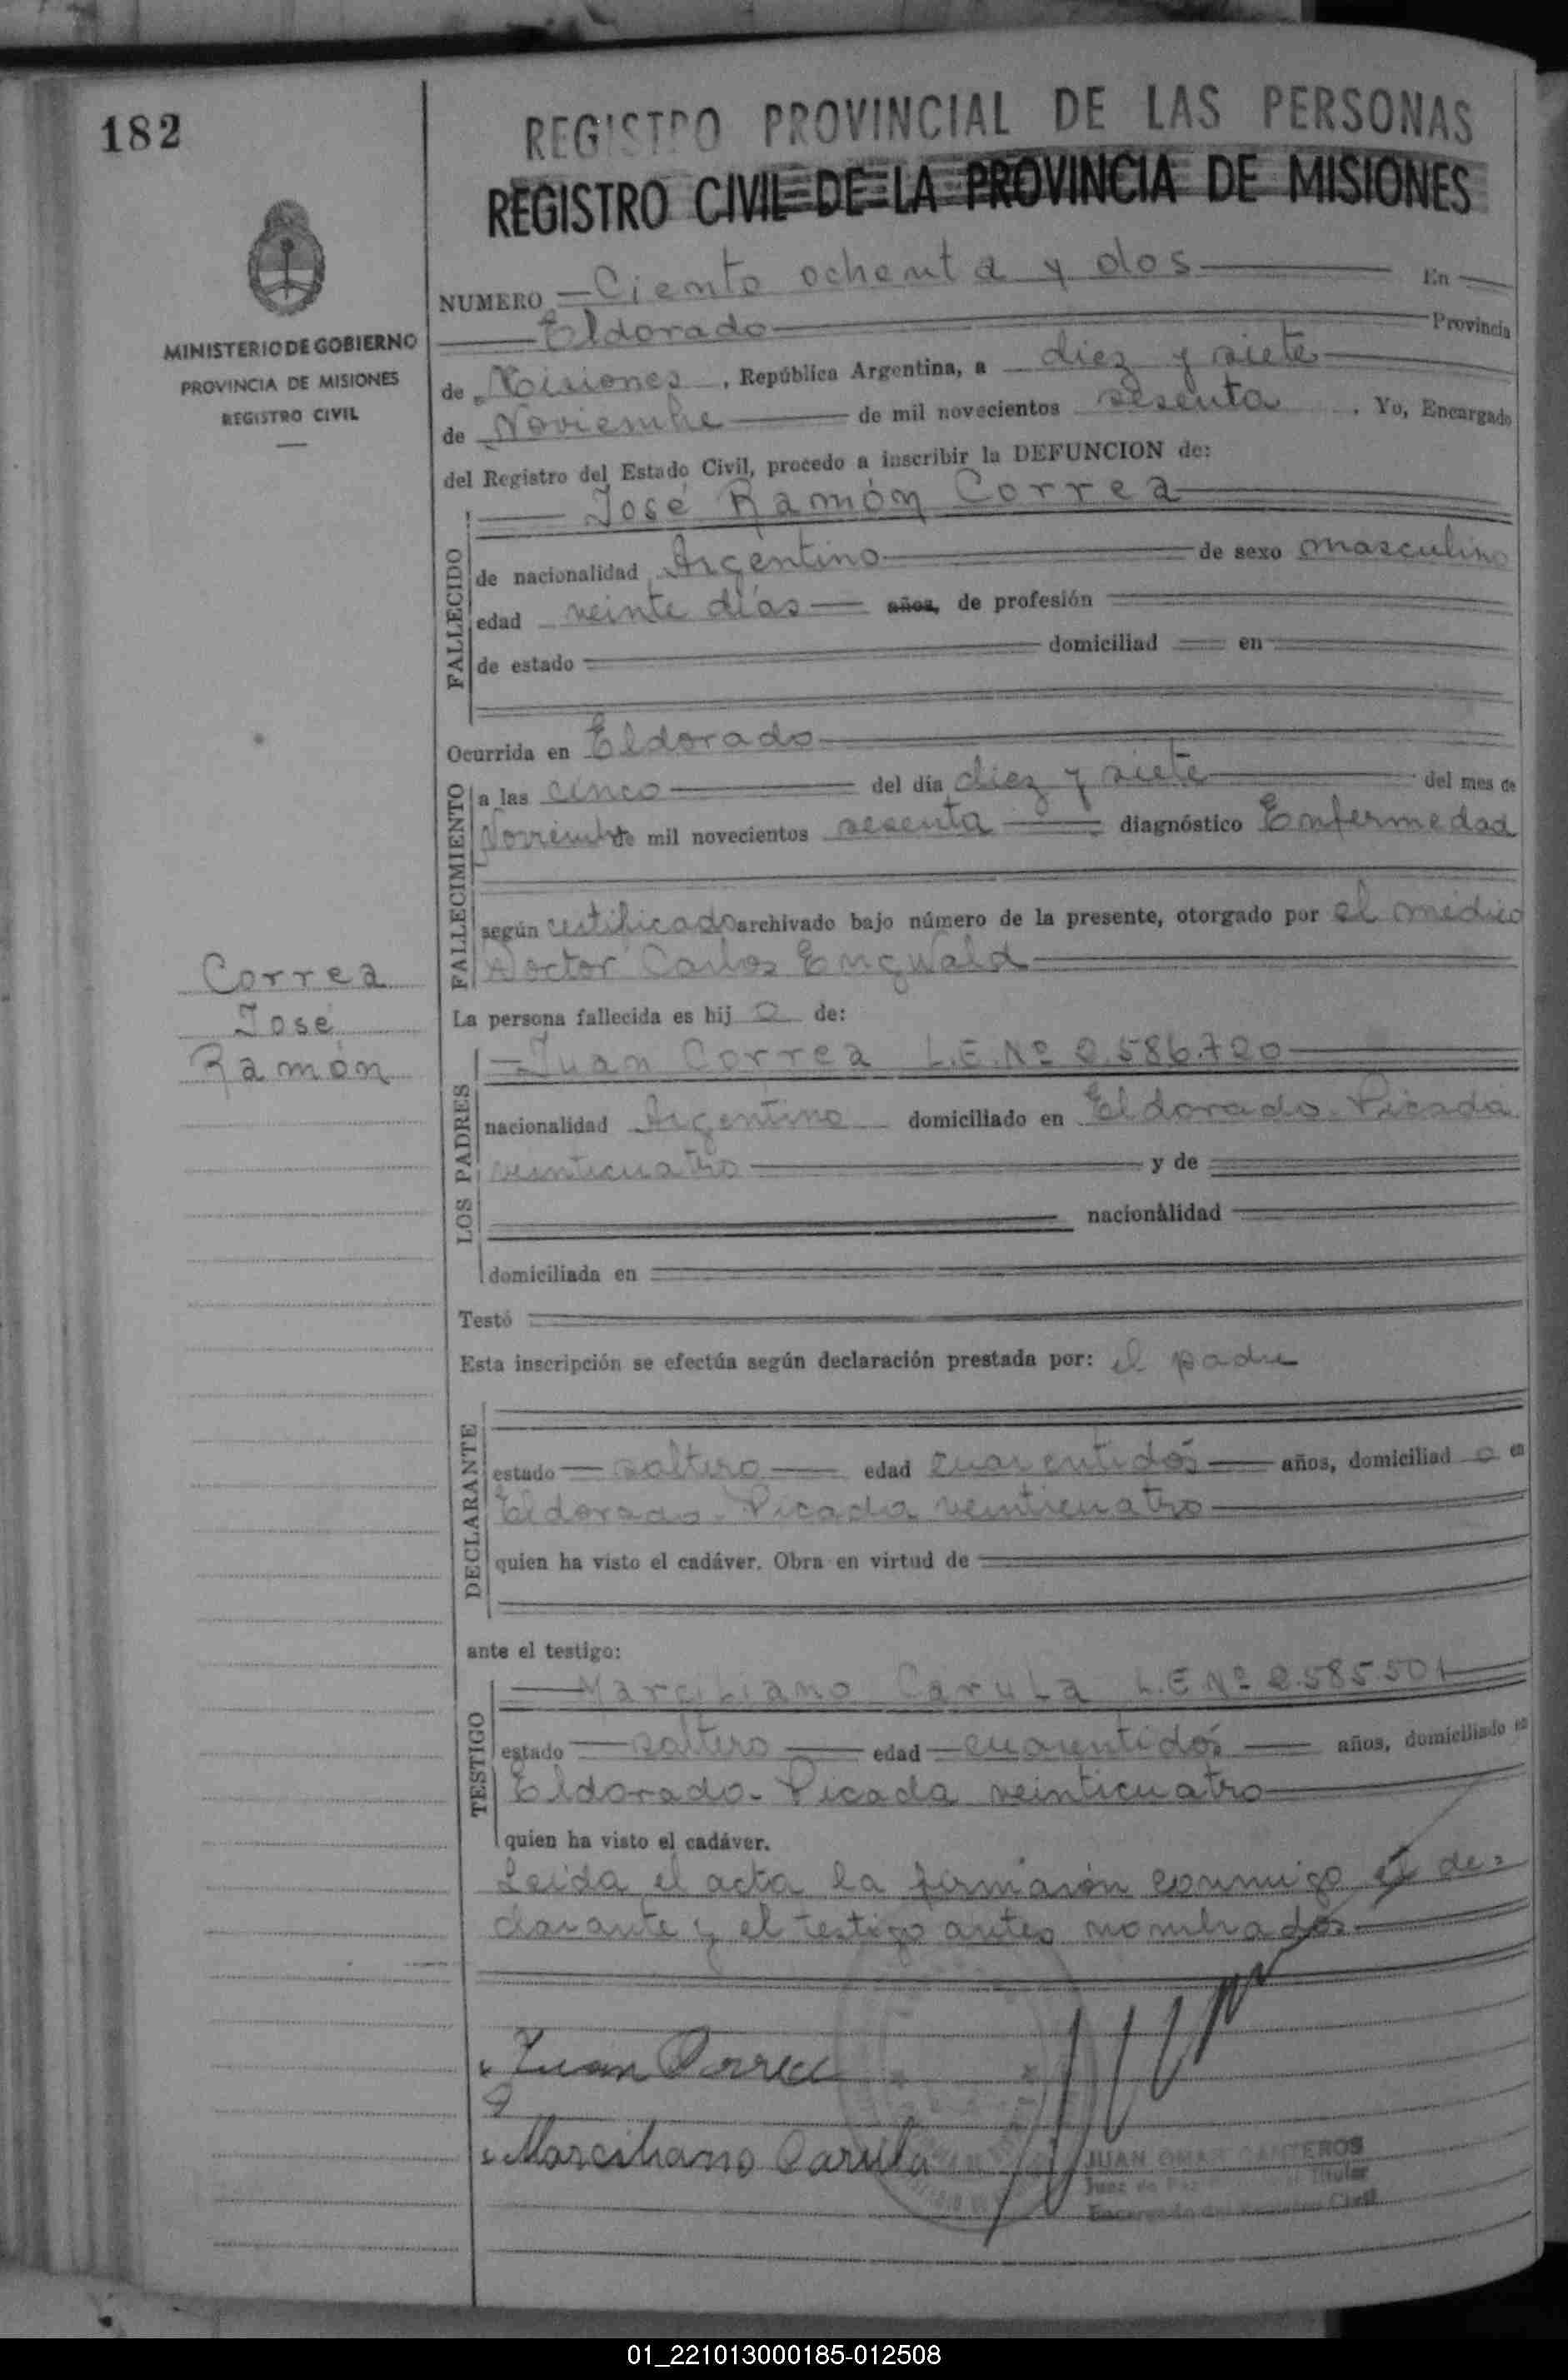 182
REGISTRO PROVINCIAL DE LAS PERSONAS
REGISTRO CIVIL DE LA PROVINCIA DE MISIONES
MINISTERIO DE GOBIERNO
PROVINCIA DE MISIONES
REGISTRO CIVIL
NUMERO Ciento ochenta y dos En
Eldorado Provincia
de Misiones, República Argentina, a diez y siete
de Noviembre de mil novecientos sesenta. Yo, Encargado
del Registro del Estado Civil, procedo a inscribir la DEFUNCION de:
FALLECIDO
José Ramón Correa
de nacionalidad Argentino de sexo masculino
edad veinte días años, de profesión
de estado domiciliad en
Ocurrida en Eldorado
FALLECIMIENTO
a las cinco del día diez y siete del mes de
Noviembre de mil novecientos sesenta diagnóstico Enfermedad
según certificado archivado bajo número de la presente, otorgado por el médico
Doctor Carlos Engwald
Correa
José
Ramón
La persona fallecida es hij o de:
LOS PADRES
Juan Correa L.E.Nº 2.586.720
nacionalidad Argentino domiciliado en Eldorado-Picada
veinticuatro y de
nacionalidad
domiciliada en
Testó
Esta inscripción se efectúa según declaración prestada por: el padre
DECLARANTE
estado soltero edad cuarentidós años, domiciliad o en
Eldorado-Picada veinticuatro
quien ha visto el cadáver. Obra en virtud de
ante el testigo:
TESTIGO
Marciliano Carula L.E Nº 2.585.501
estado soltero edad cuarentidós años, domiciliado en
Eldorado-Picada veinticuatro
quien ha visto el cadáver.
Leida el acta la firmaron conmigo el de=
clarante y el testigo antes nombrados
Juan Correa
Marciliano Carula
JUAN OMAR CANTEROS
Juez de Paz Titular
Encargado del Registro Civil
01_221013000185-012508